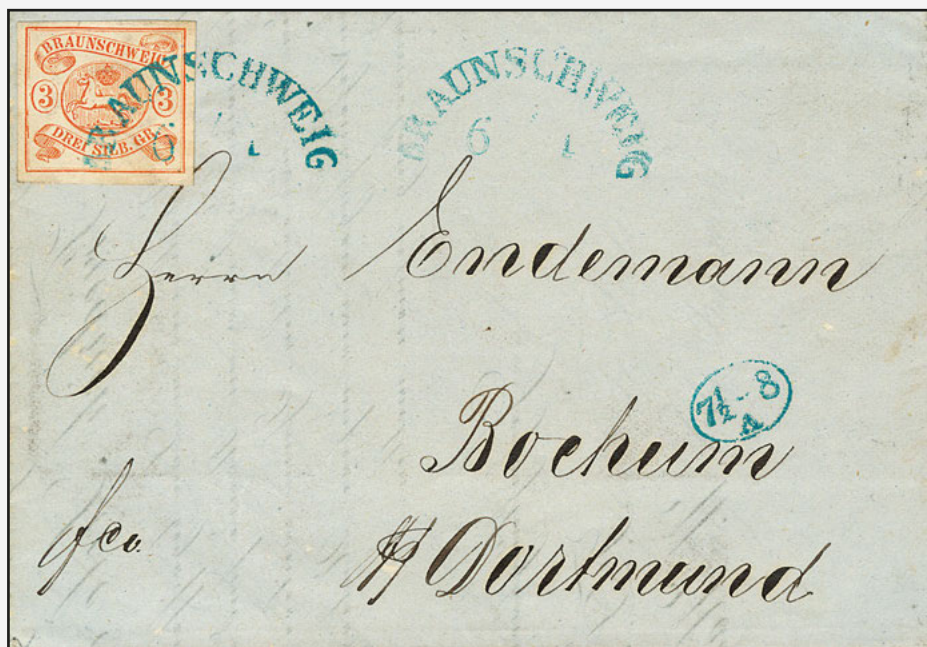 BRAUNSCHWEIG
3 3
DREI SILB. GR.
BRAUNSCHWEIG
6 1
BRAUNSCHWEIG
6 1
Herrn Endemann
7½-8
A
Bochum
fco. Dortmund